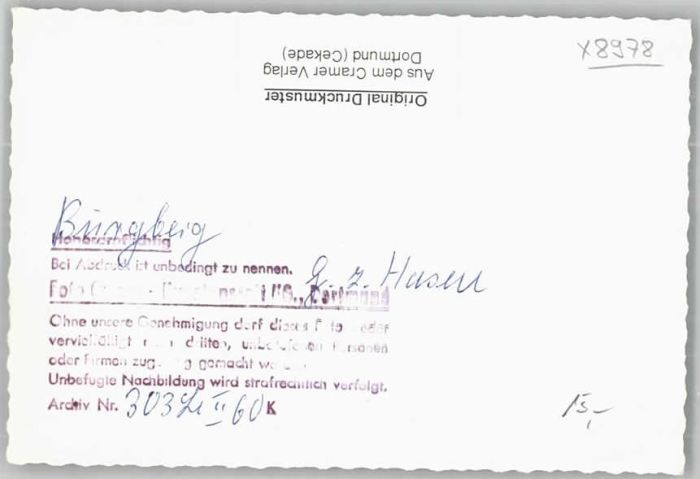 x8978
Original Druckmuster
Aus dem Cramer Verlag
Dortmund (Cekade)
Burgberg
Honorarpflichtig
Bei Abdruck ist unbedingt zu nennen.
G. z. Hasen
Foto KG., Dortmund
Ohne unsere Genehmigung darf dieses Foto weder
vervielfältigt noch dritten, unbetroffenen Personen
oder Firmen zugängig gemacht werden.
Unbefugte Nachbildung wird strafrechtlich verfolgt.
Archiv Nr. 303 II 60 K
15,-